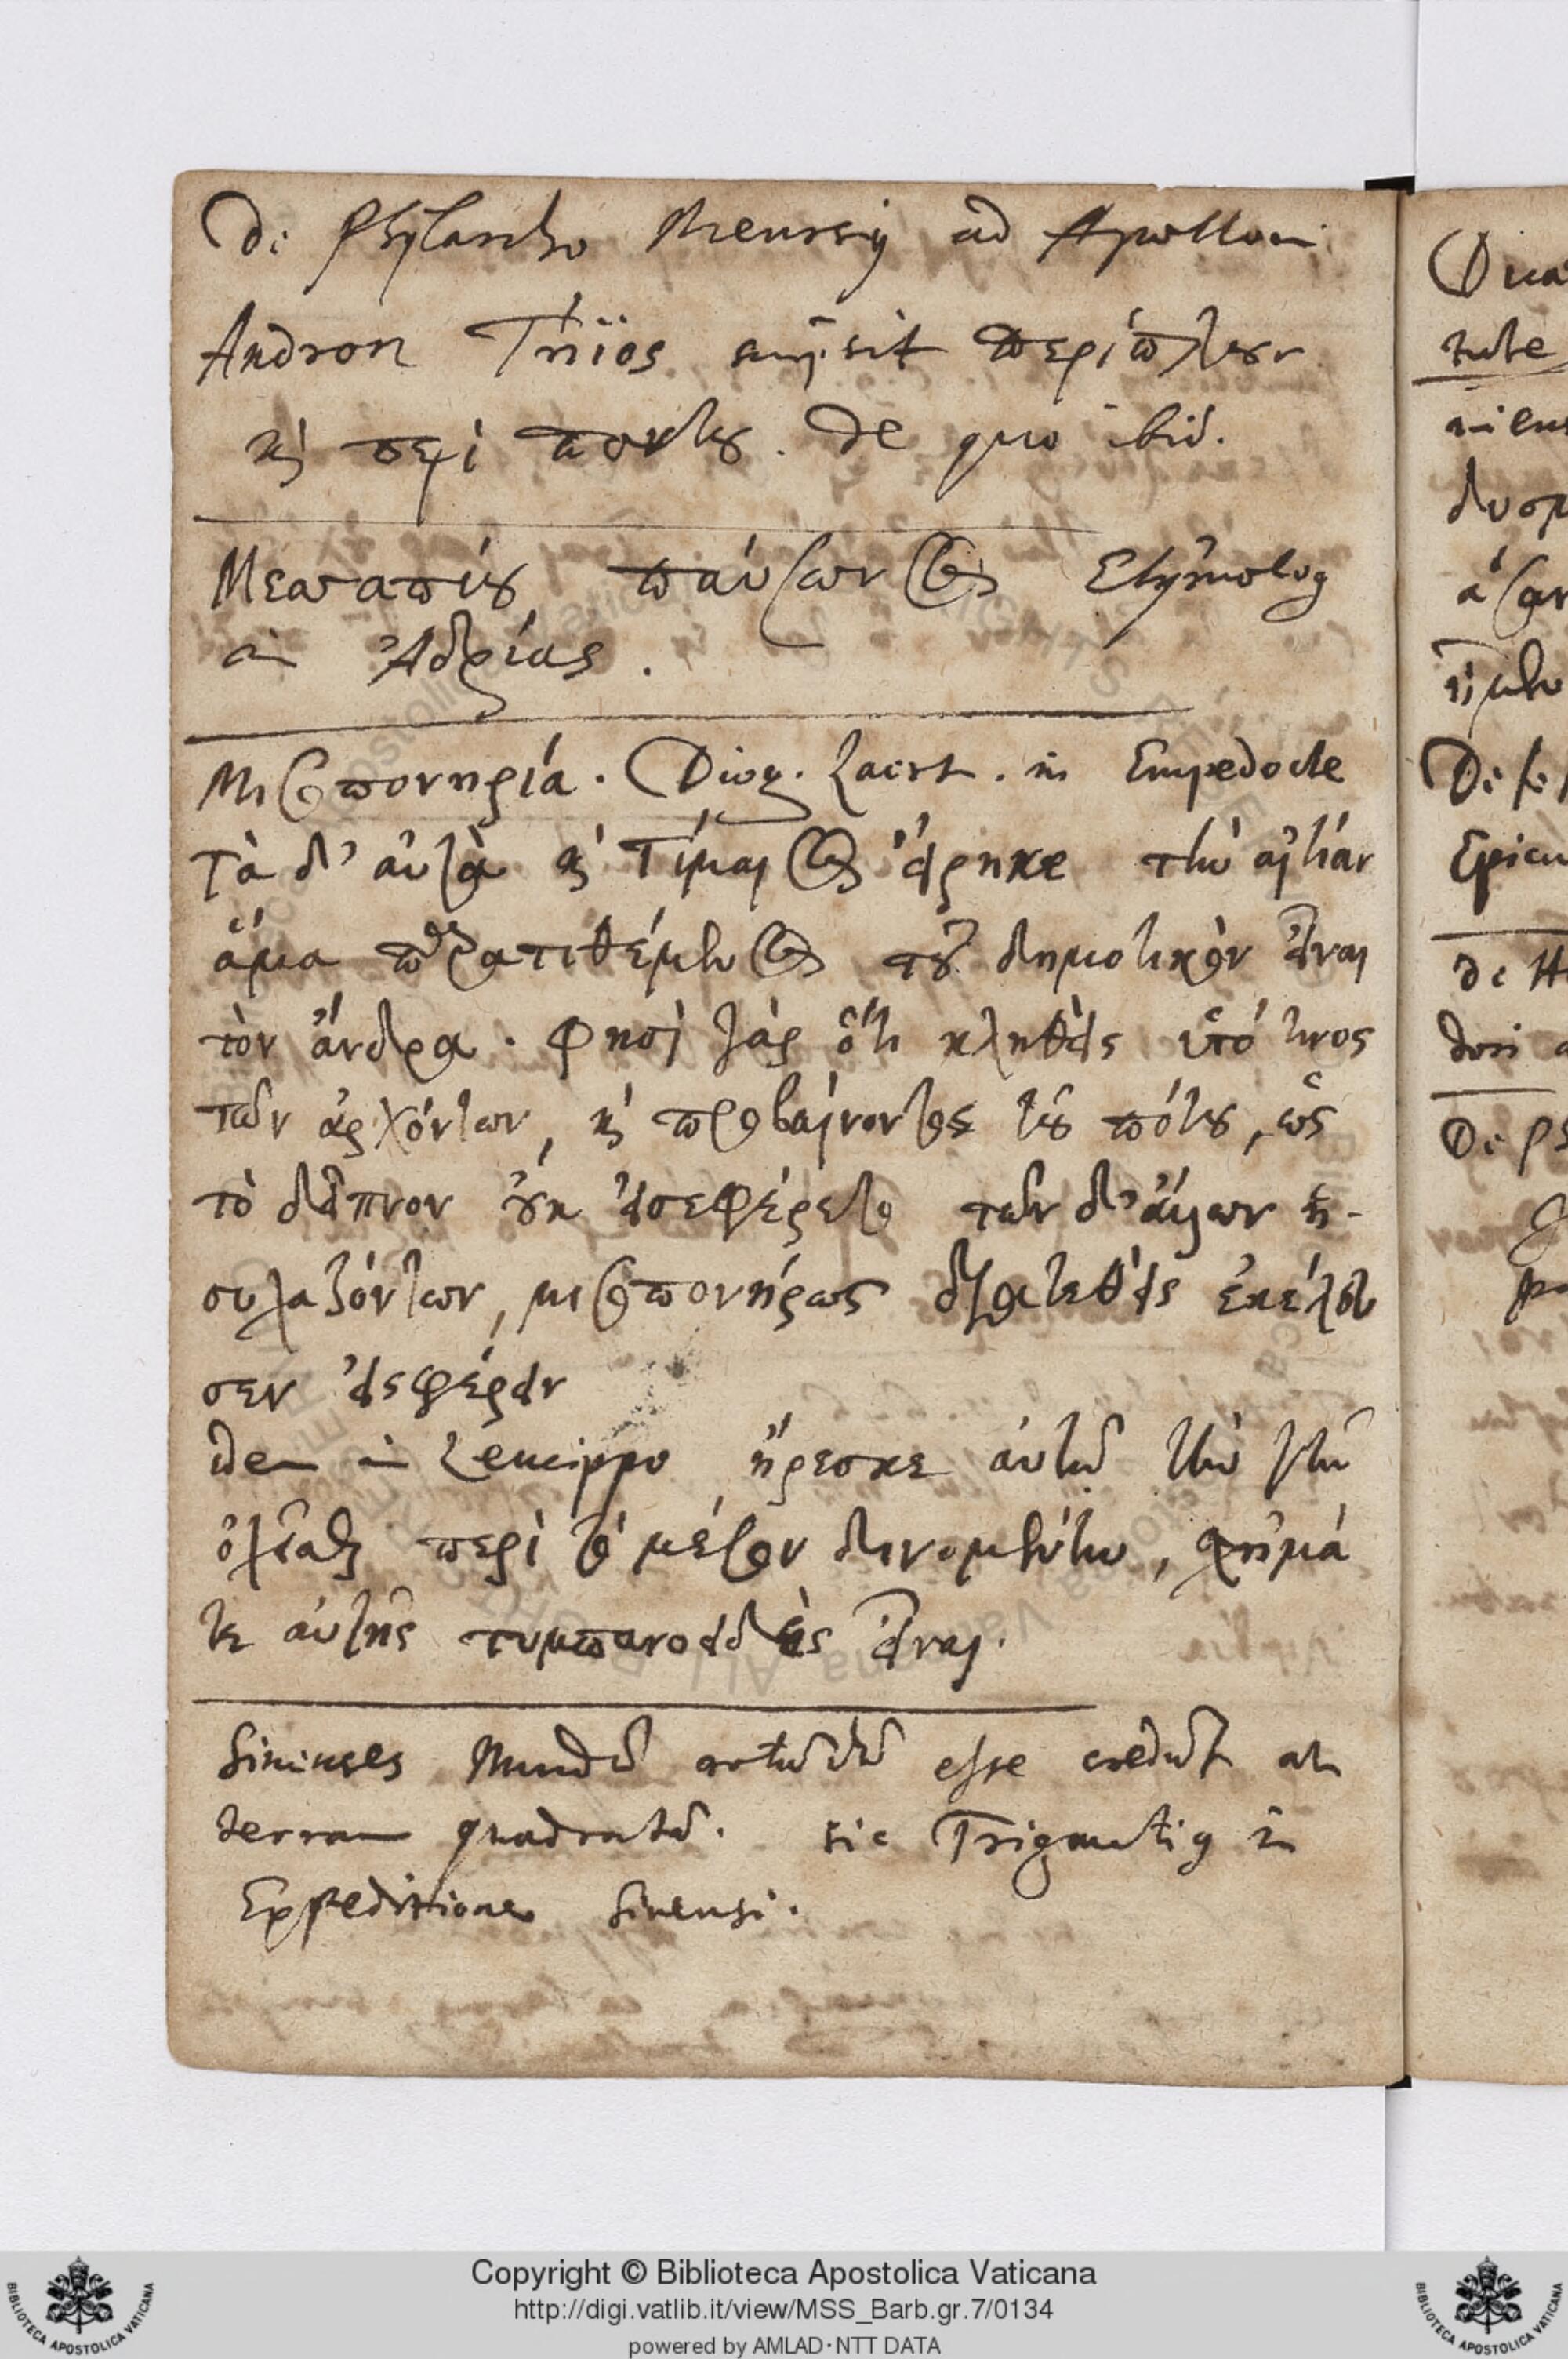 De Phylarcho Meursiꝰ ad Apollon.
Andron Τήϊος scripsit περίπλουν
κὶ περὶ πόντου. De quo ibid.
Μεσαπίου παύσωνος Etymolog
in Ἀδρίας.
Μισοπονηρία. Diog. Laert. in Empedocle
τὰ δ' αὐτὰ κὶ Τίμαιος εἴρηκε τὴν αἰτίαν
ἅμα παρατιθέμενος τοῦ δημοτικὸν εἶναι
τὸν ἄνδρα. Φησὶ γάρ ὅτι κληθεὶς ὑπό τινος
τῶν ἀρχόντων, κὶ προβαίνοντος τοῦ πότου, ὡς
τὸ δεῖπνον οὐκ εἰσεφέρετο τῶν δ' ἄλλων ἡ-
συχαζόντων, μισοπονήρως διατεθεὶς ἐκέλευ
σεν εἰσφέρειν
idem in Leucippo ἤρεσκε αὐτῷ τὴν γῆν
ὀχεῖσθαι περὶ τὸ μέσον δινουμένην, σχῆμά
τε αὐτῆς τυμπανοειδὲς εἶναι.
Sinenses Mundū rotūdū esse credūt at
terram quadratā. sic Trigautiꝰ in
Expeditione Sinensi.
Dica
tute
δυσμ
De H
De Ps
Copyright © Biblioteca Apostolica Vaticana
http://digi.vatlib.it/view/MSS_Barb.gr.7/0134
powered by AMLAD·NTT DATA
BIBLIOTECA APOSTOLICA VATICANA
BIBLIOTECA APOSTOLICA VATICANA